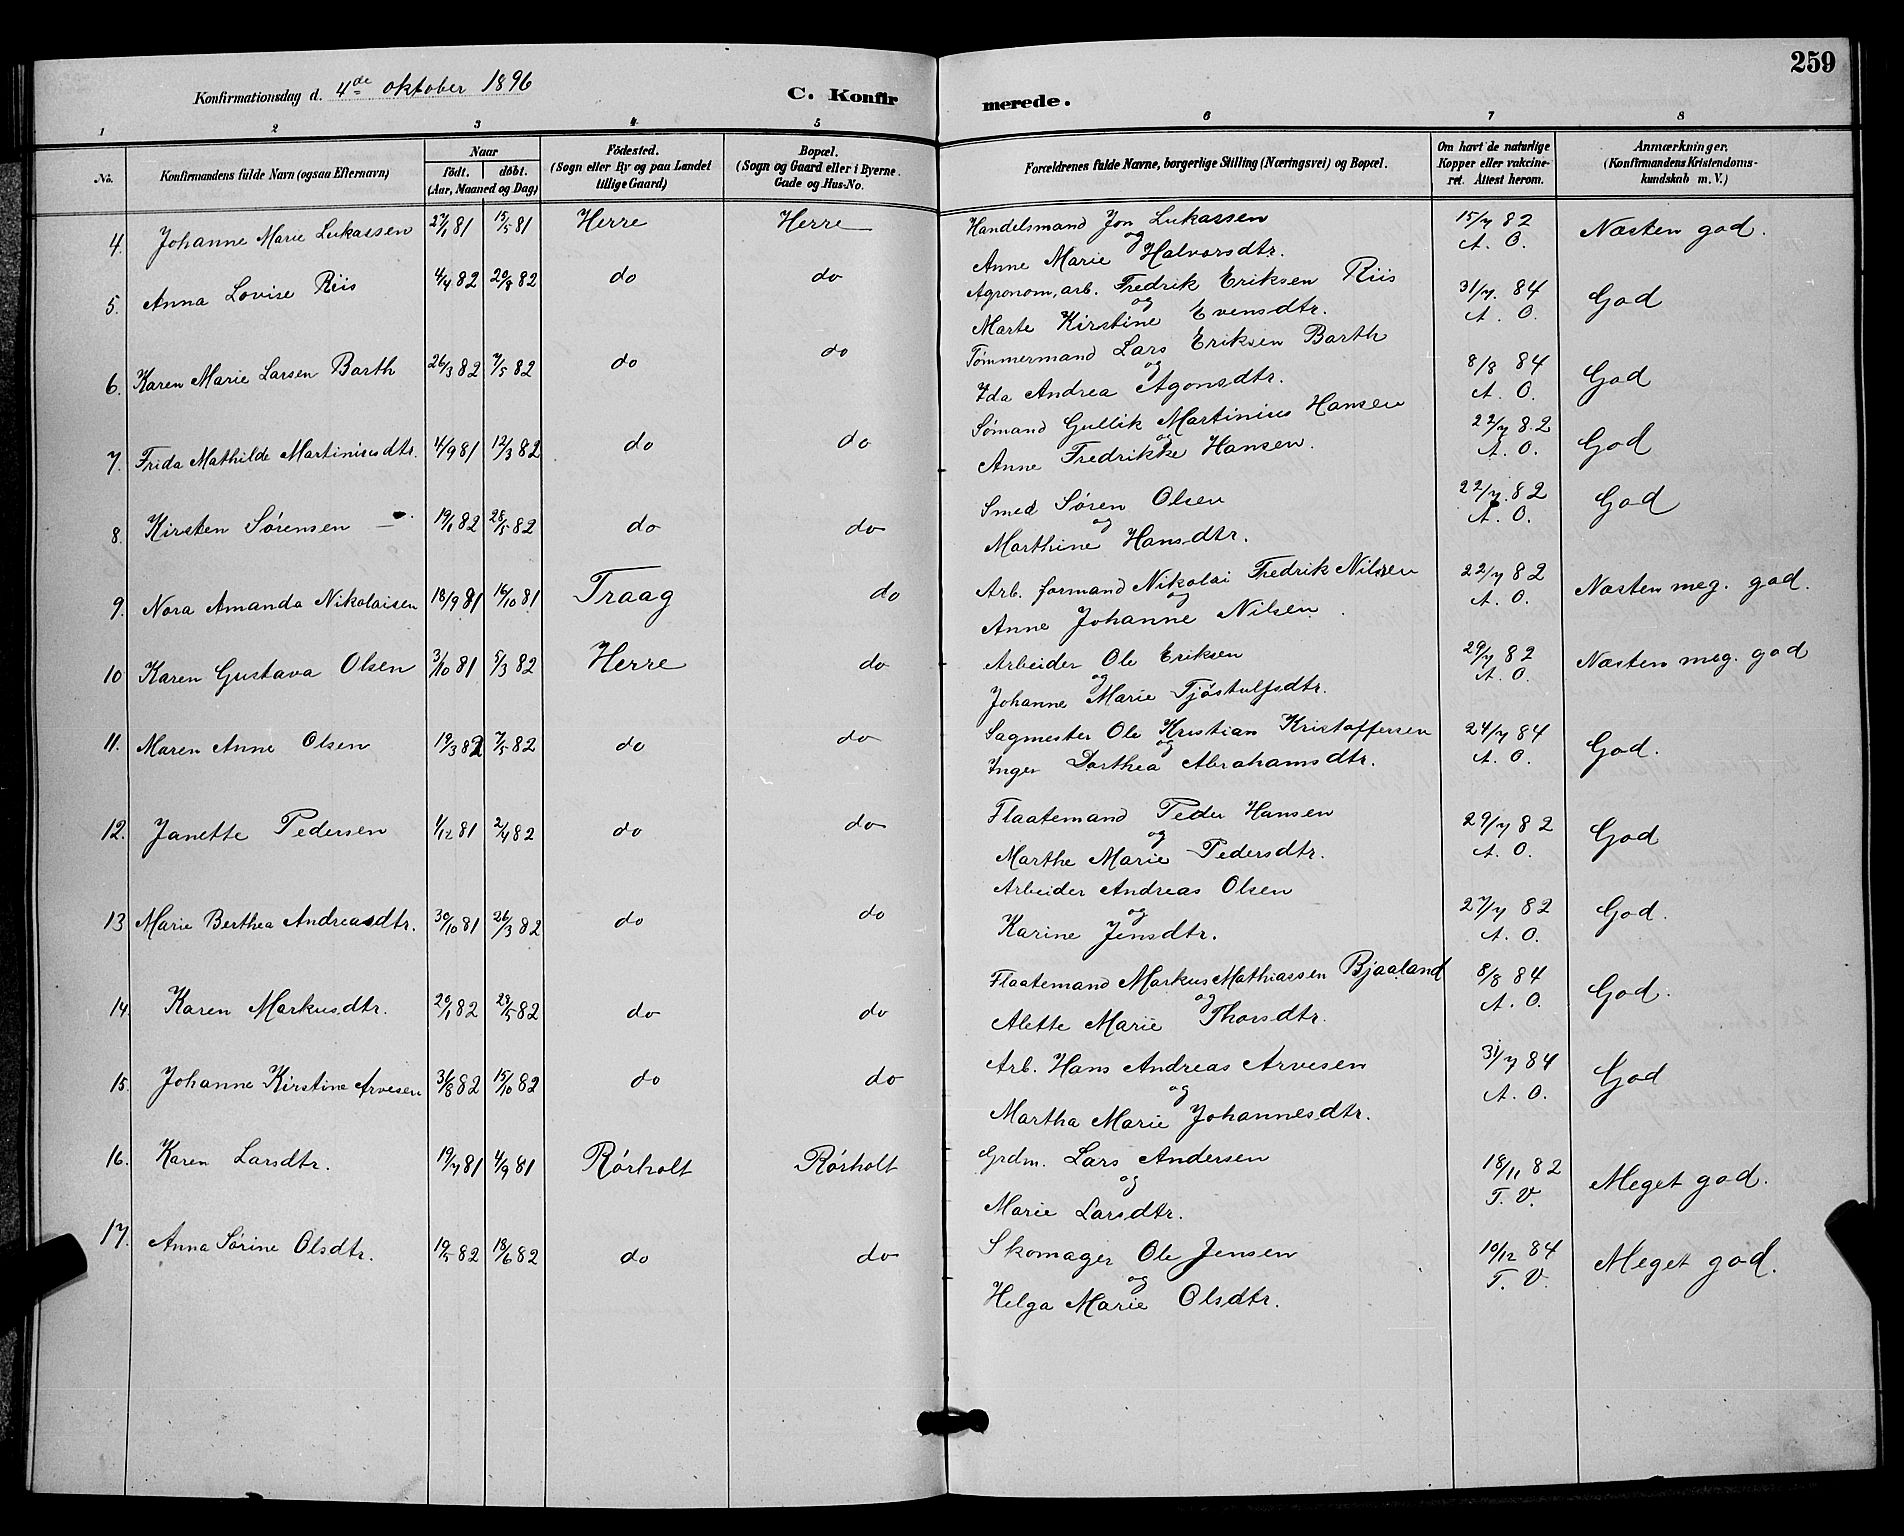 259
Konfirmationsdag d. 4de oktober 1896 C. Konfirmerede.
1 2 3 4 5 6 7 8
No. Konfirmandens fulde Navn (ogsaa Efternavn) Naar födt. döbt. (Aar, Maaned og Dag) Födested. (Sogn eller By og paa Landet tillige Gaard) Bopæl. (Sogn og Gaard eller i Byerne Gade og Hus-No. Forældrenes fulde Navne, borgerlige Stilling (Næringsvei) og Bopæl. Om havt de naturlige Kopper eller vakcineret. Attest herom. Anmærkninger. (Konfirmandens Kristendomskundskab m. V.)
4. Johanne Marie Lukassen 27/1 81 15/5 81 Herre Herre Handelsmand Jon Lukassen 15/7 82 Næsten god.
og
Anne Marie Halvorsdtr. A. O.
5. Anna Lovise Riis 4/4 82 20/8 82 do do Agronom, arb. Fredrik Eriksen Riis 31/7. 84 God
og
Marte Kirstine Evensdtr. A. O.
6. Karen Marie Larsen Barth 26/3 82 7/5 82 do do Tømmermand Lars Eriksen Barth 8/8 84 God
og
Ida Andrea Agonsdtr. A. O.
7. Frida Mathilde Martiniusdtr. 4/9 81 12/3 82 do do Sømand Gullik Martinius Hansen 22/7 82 God
og
Anne Fredrikke Hansen. A. O.
8. Kirsten Sørensen – 19/1 82 28/5 82 do do Smed Søren Olsen 22/7. 82 God
og
Marthine Hansdtr. A. O.
9. Nora Amanda Nikolaisen 18/9 81 16/10 81 Traag do Arb. formand Nikolai Fredrik Nilsen 22/7 82 Næsten meg. god.
og
Anne Johanne Nilsen. A. O.
10 Karen Gustava Olsen 3/10 81 5/3 82 Herre do Arbeider Ole Eriksen 29/7 82 Næsten meg. god
og
Johanne Marie Tjøstulfsdtr. A. O.
11. Maren Anne Olsen 19/3 82 7/5 82 do do Sagmester Ole Kristian Kristoffersen 24/7 84 God.
og
Inger Dorthea Abrahamsdtr. A. O.
12. Janette Pedersen 1/12 81 2/4 82 do do Flaatemand Peder Hansen 29/7 82 God
og
Marthe Marie Pedersdtr. A. O.
13 Marie Berthea Andreasdtr. 30/10 81 26/3 82 do do Arbeider Andreas Olsen 27/7 82 God.
og
Karine Jensdtr. A. O.
14. Karen Markusdtr. 20/1 82 29/5 82 do do Flaatemand Markus Mathiassen Bjaaland 8/8 84 God.
og
Alette Marie Thorsdtr. A. O.
15. Johanne Kirstine Arvesen 31/8 82 15/10 82 do do Arb. Hans Andreas Arvesen 31/7 84 God
og
Martha Marie Johannesdtr. A. O.
16. Karen Larsdtr. 19/7 81 4/9 81 Rørholt Rørholt Grdm. Lars Andersen 18/11 82 Meget god.
og
Marie Larsdtr. T. V.
17. Anna Sørine Olsdtr. 19/5 82 18/6 82 do do Skomager Ole Jensen 10/12 84 Meget god.
og
Helga Marie Olsdtr. T. V.